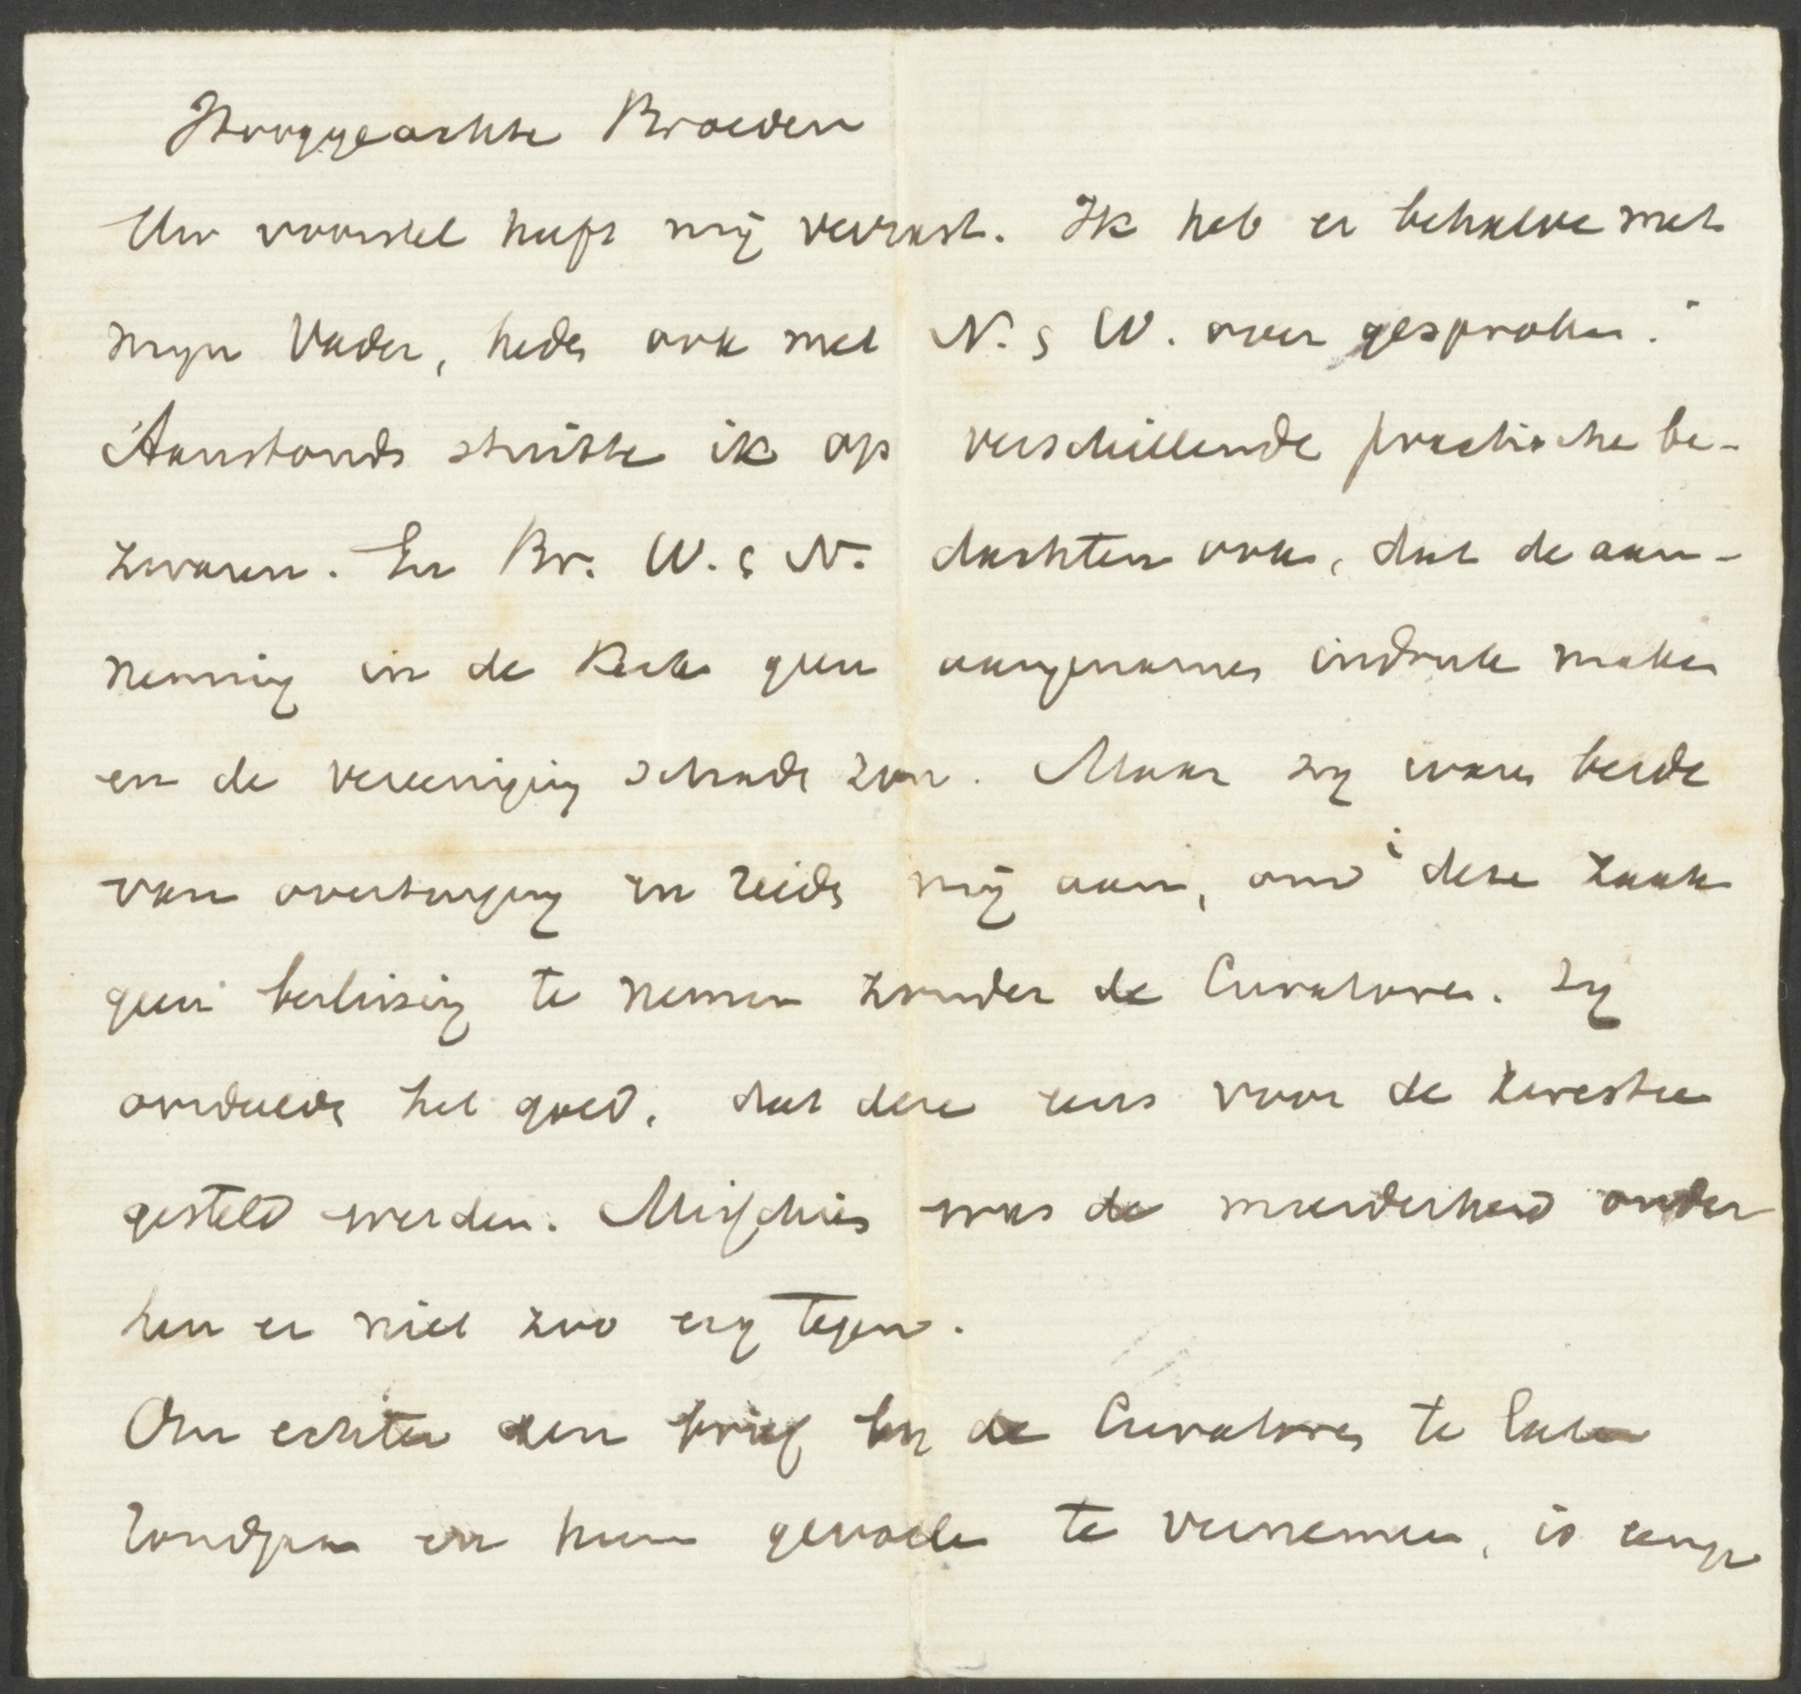 Hooggeachte Broeder
Uw voorstel heeft mij verrast. Ik heb er behalve met
mijn Vader, heden ook met N. & W. over gesproken.
Aanstonds stuitte ik op verschillende practische be-
zwaren. En Br. W. & N. dachten ook, dat de aan-
neming in de Kerk geen aangenamen indruk maken
en de vereeniging schade zou. Maar zij waren beide
van overtuiging en rieden mij aan, om i deze zaak
geen beslissing te nemen zonder de Curatoren. Zij
oordeelden het goed, dat deze eens voor de kwestie
gesteld werden. Misschien was de meerderheid onder
hen er niet zoo erg tegen.
Om echter den brief bij de Curatoren te laten
rondgaan en hun gevoelen te vernemen, is eenige